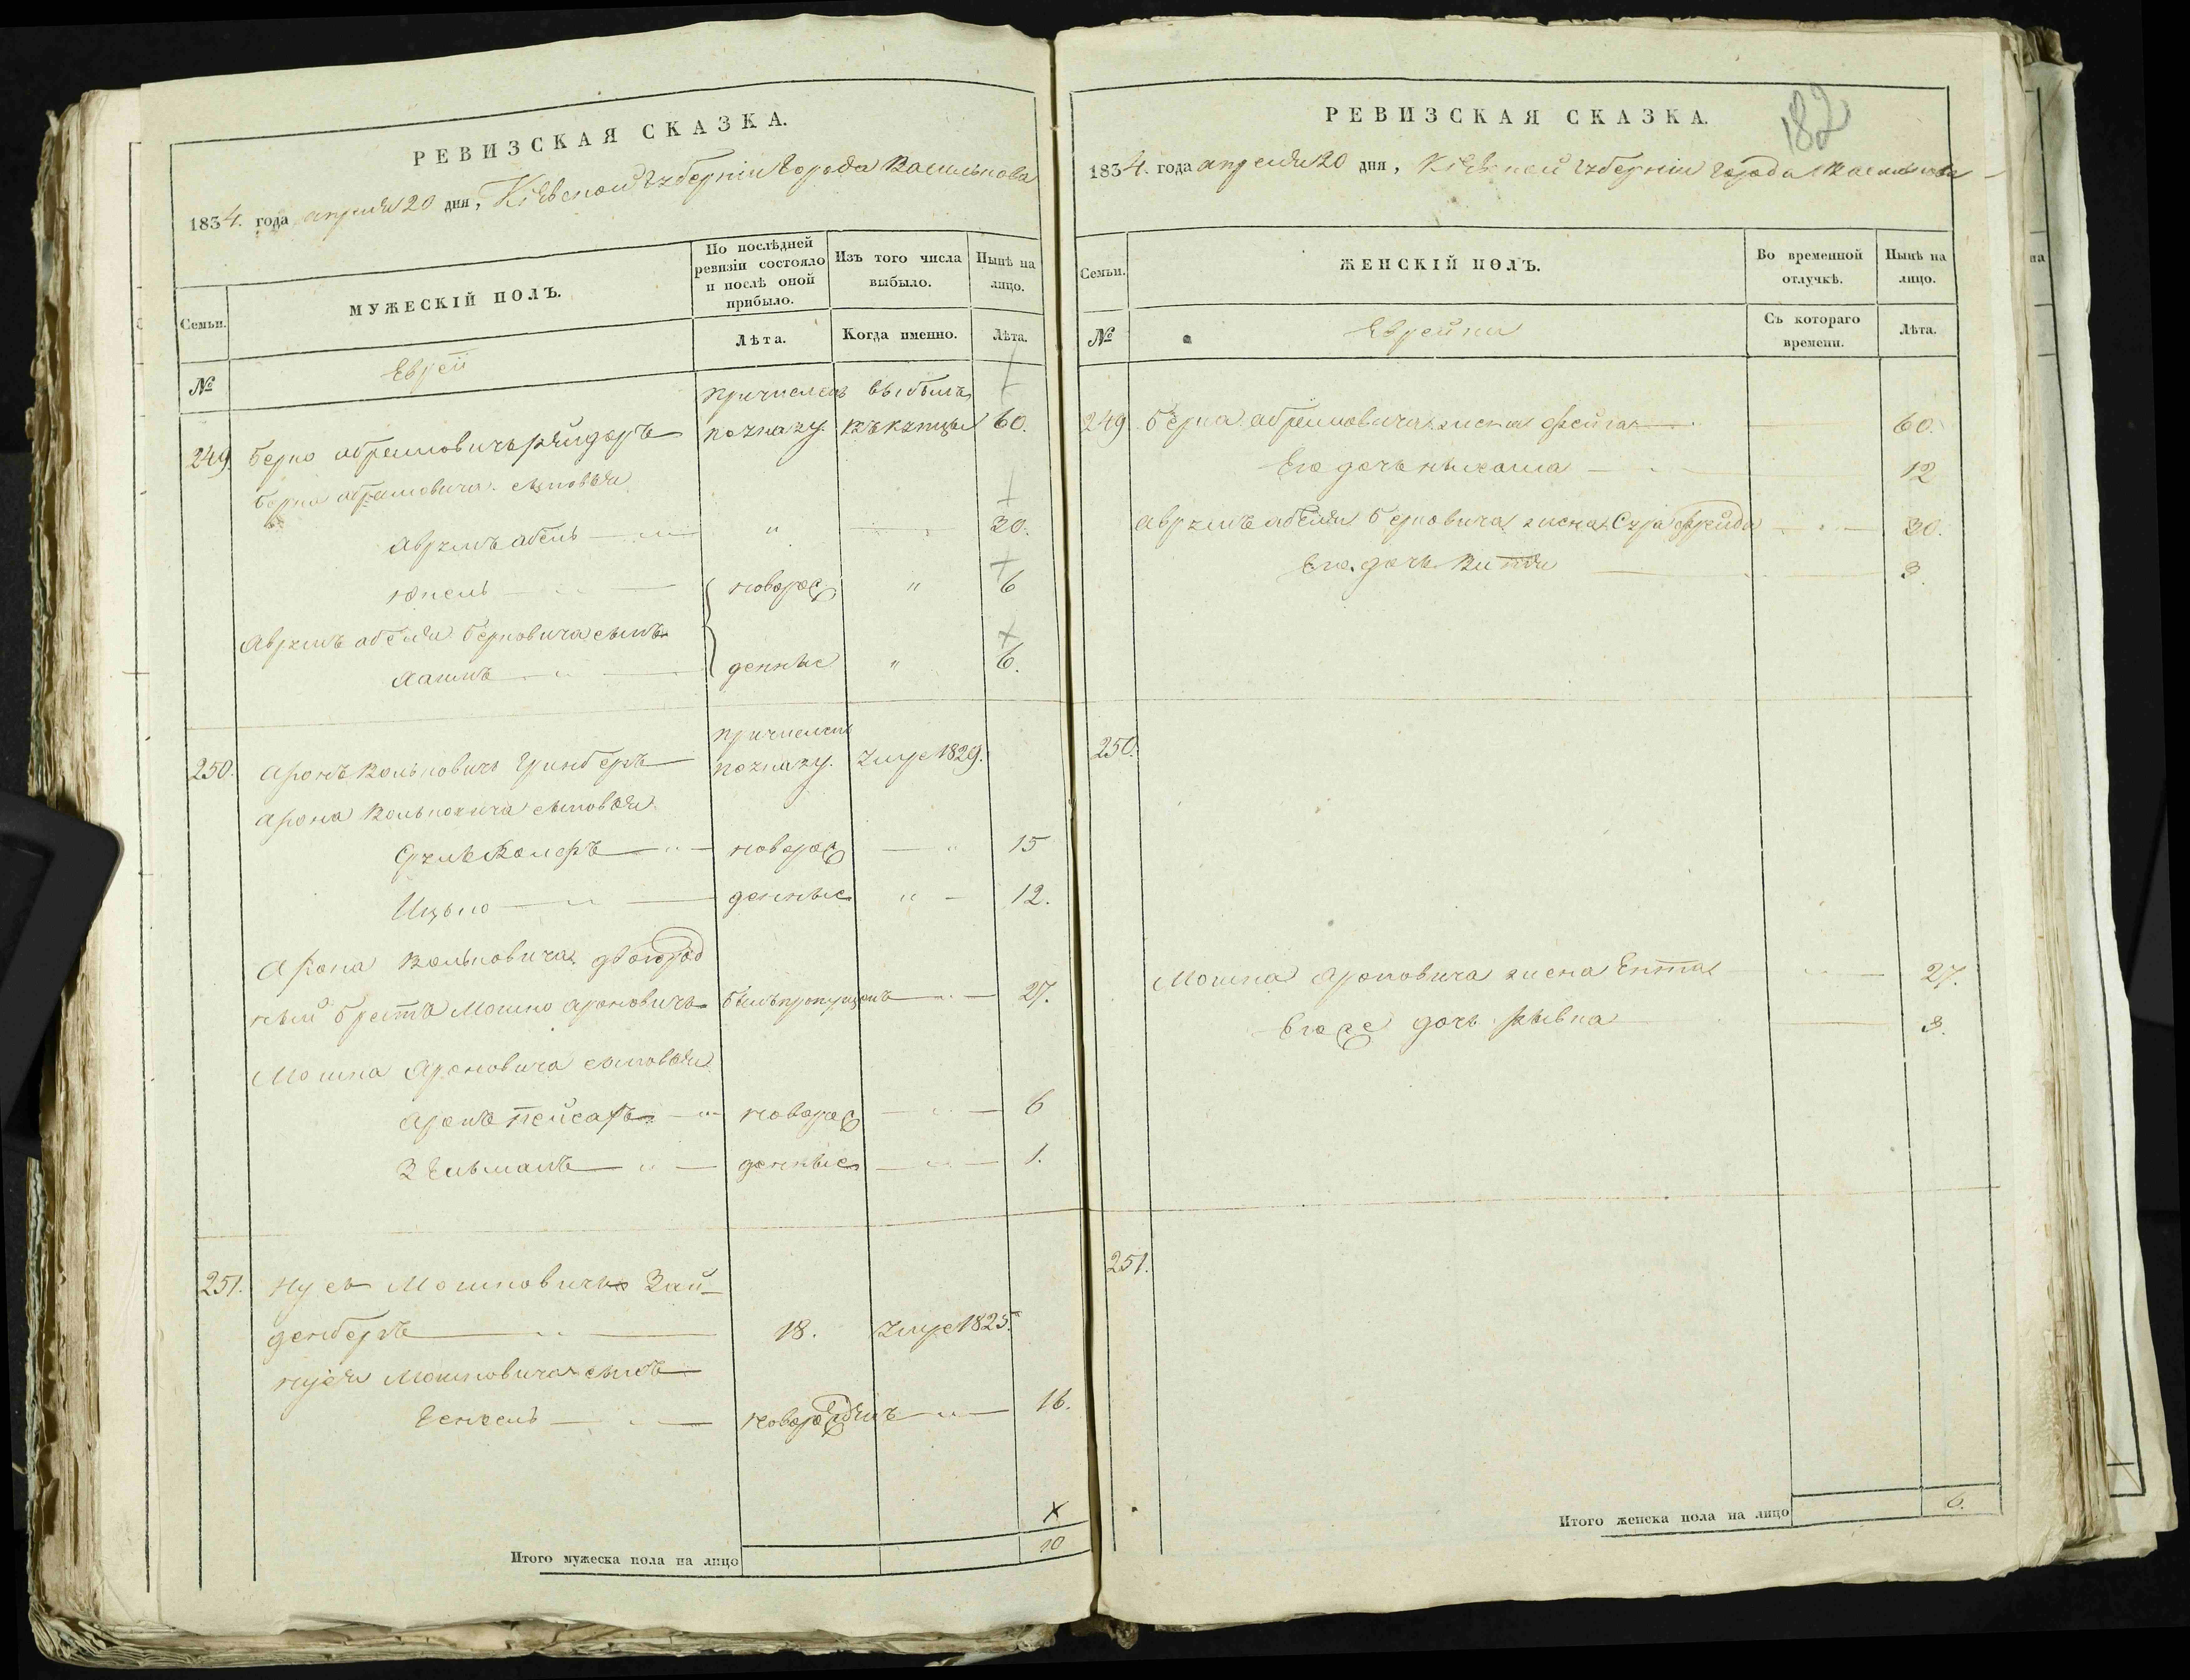 РЕВИЗСКАЯ СКАЗКА.
1834. года апреля 20 дня, Кіевской Губерніи Города Василькова
Семьи.
МУЖЕСКІЙ ПОЛЪ.
По послѣдней ревизіи состояло и послѣ оной прибыло.
Изъ того числа выбыло.
Нынѣ на лицо.
№
Евреи
Лѣта.
Когда именно.
Лѣта.
причисленъ выбылъ
249. Берко Абрамовичъ по указу. 60.
Берка Абрамовича сыновья
Аврумъ Абель " 30.
Юкель новорож " 6
Аврумъ Абеля Берковича сынъ
Хаимъ денные " 6.
причисленъ
250. Аронъ Вольковичъ Гринберъ по указу. Умре 1829.
Арона Вольковича сыновья
Сруль Волфъ новорож " 15
Ицько денные " 12.
Арона Вольковича двоюрод
ный братъ Мошко Ароновичъ былъ пропущенъ 27.
Мошка Ароновича сыновья
Аронъ Пейсахъ новорож 6
Зельманъ денные 1.
251. Нусь Мошковичъ Зай-
денберъ 18. Умре 1825.
Нуся Мошковича сынъ
Генхель новорожденъ 16.
Итого мужеска пола на лицо 10
РЕВИЗСКАЯ СКАЗКА.
182
1834. года апреля 20 дня, Кіевской Губерніи Города Василькова
Семьи.
ЖЕНСКІЙ ПОЛЪ.
Во временной отлучкѣ.
Нынѣ на лицо.
№
Еврейки
Съ котораго времени.
Лѣта.
249. Берка Абрамовича жена Фейга 60.
Его дочь 12
Аврумъ Абеля Берковича жена Сура Фрейда 30.
Его дочь 3.
250.
Мошка Ароновича жена Ента 27.
Его же дочь Рывка 3.
251.
Итого женска пола на лицо 6.